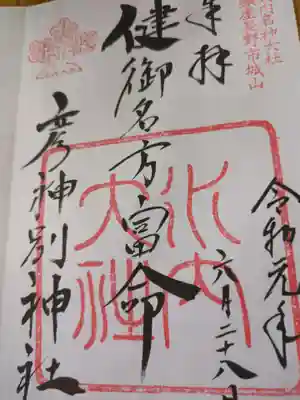 名神大社
長野市城山
奉拝
令和元年
六月二十八日
健御名方富命
彦神別神社
水内
大社